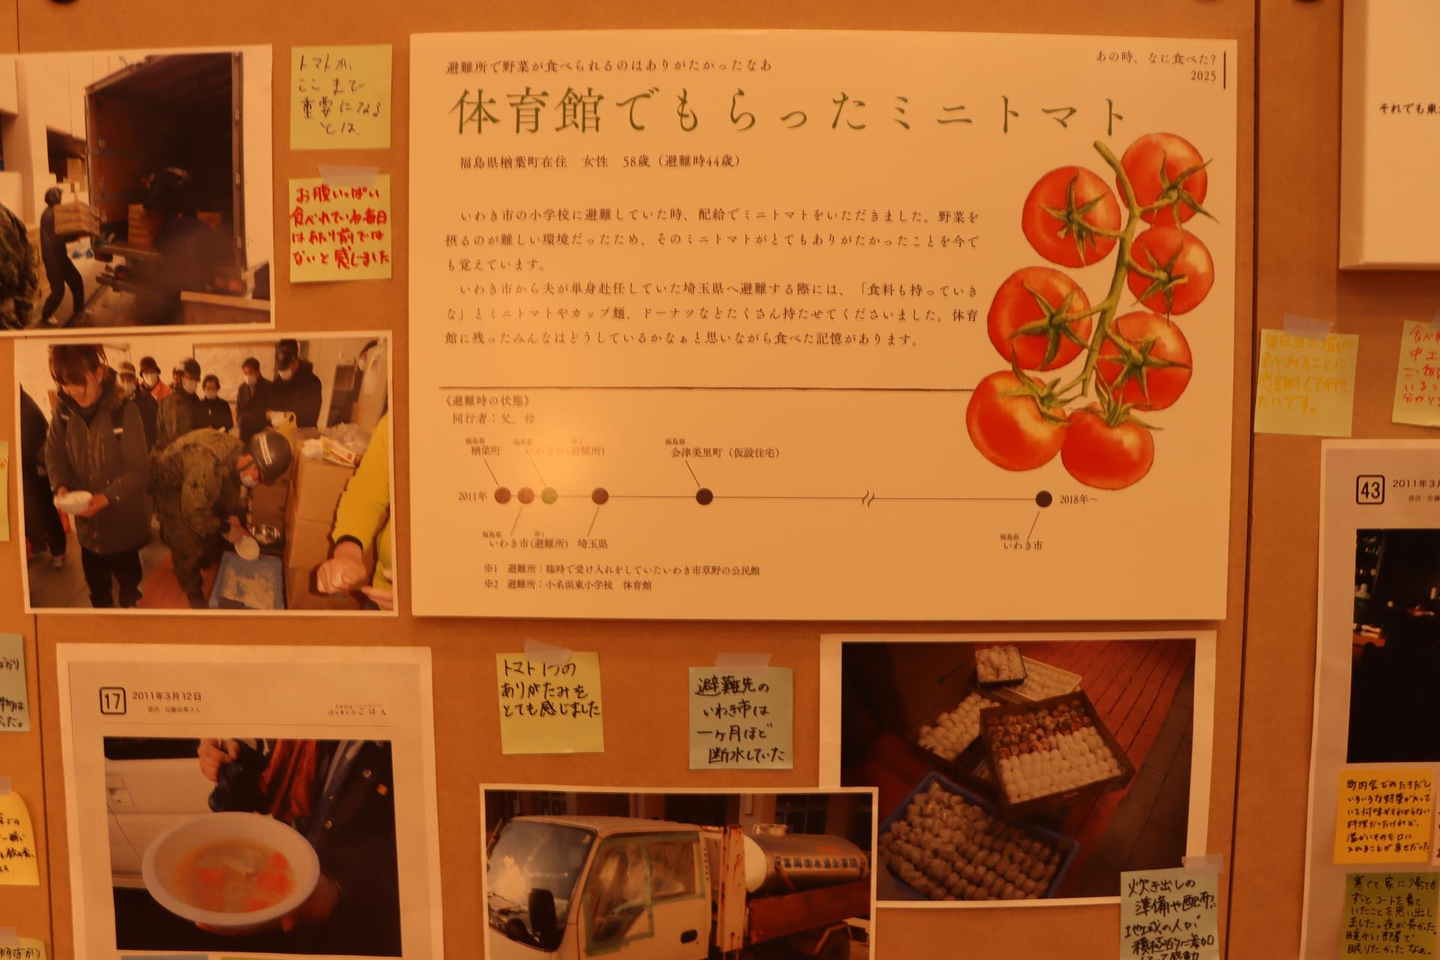 避難所で野菜が食べられるのはありがたかったなあ
あの時、なに食べた?
2025
体育館でもらったミニトマト
福島県楢葉町在住 女性 58歳(避難時44歳)
いわき市の小学校に避難していた時、配給でミニトマトをいただきました。野菜を
摂るのが難しい環境だったため、そのミニトマトがとてもありがたかったことを今で
も覚えています。
いわき市から夫が単身赴任していた埼玉県へ避難する際には、「食料も持っていき
な」とミニトマトやカップ麺、ドーナツなどたくさん持たせてくださいました。体育
館に残ったみんなはどうしているかなぁと思いながら食べた記憶があります。
《避難時の状態》
同行者：父、母
福島県
楢葉町
福島県
※2
いわき市(避難所)
福島県
会津美里町(仮設住宅)
2011年
2018年～
福島県
※1
いわき市(避難所)
埼玉県
福島県
いわき市
※1 避難所：臨時で受け入れをしていたいわき市草野の公民館
※2 避難所：小名浜東小学校 体育館
トマトが、
ここまで
重要になる
とは、
お腹いっぱい
食べれている毎日
は当たり前では
ないと感じました
それでも東
毎日当たり前に
食べれることに
感謝して行き
たいです。
43
2011年3月
17
2011年3月12日
ごはん
トマト1つの
ありがたみを
とても感じました
避難先の
いわき市は
一ヶ月ほど
断水していた
炊き出しの
準備や配布に
地域の人が
積極的に参加
町内会でのたきだし
いろいろな野菜が入って
いる何味かもわからない
料理だったけれど、
温かいものを口に
入れることが幸せだった
寒くて家に帰っても
ずっとコートを着て
いたことを思い出し
ました。夜が長かった。
暖かい部屋で
眠りたかったなぁ。